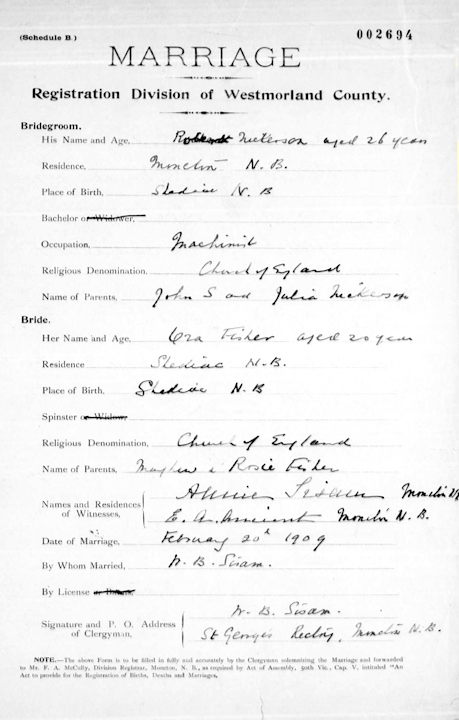 (Schedule B.)
002694
MARRIAGE
Registration Division of Westmorland County.
Bridegroom.
His Name and Age, Nickerson aged 26 years
Residence, Moncton N. B.
Place of Birth, Shediac N. B
Bachelor or Widower,
Occupation, Machinist
Religious Denomination, Church of England
Name of Parents, John S and Julia Nickerson
Bride.
Her Name and Age, Fisher aged 20 years
Residence Shediac N. B.
Place of Birth, Shediac N. B
Spinster or Widow,
Religious Denomination, Church of England
Name of Parents, & Rosie Fisher
Names and Residences of Witnesses, Annie Moncton NB
E. A. Moncton N. B.
Date of Marriage, February 20th 1909
By Whom Married, W. B. Sisam.
By License or Banns
W. B. Sisam.
Signature and P. O. Address of Clergyman. St Georges Rectory, Moncton N. B.
NOTE.—The above Form is to be filled in fully and accurately by the Clergyman solemnizing the Marriage and forwarded
to Mr. F. A. McCully, Division Registrar, Moncton, N. B., as required by Act of Assembly, 50th Vic., Cap. V, intituled "An
Act to provide for the Registration of Births, Deaths and Marriages.